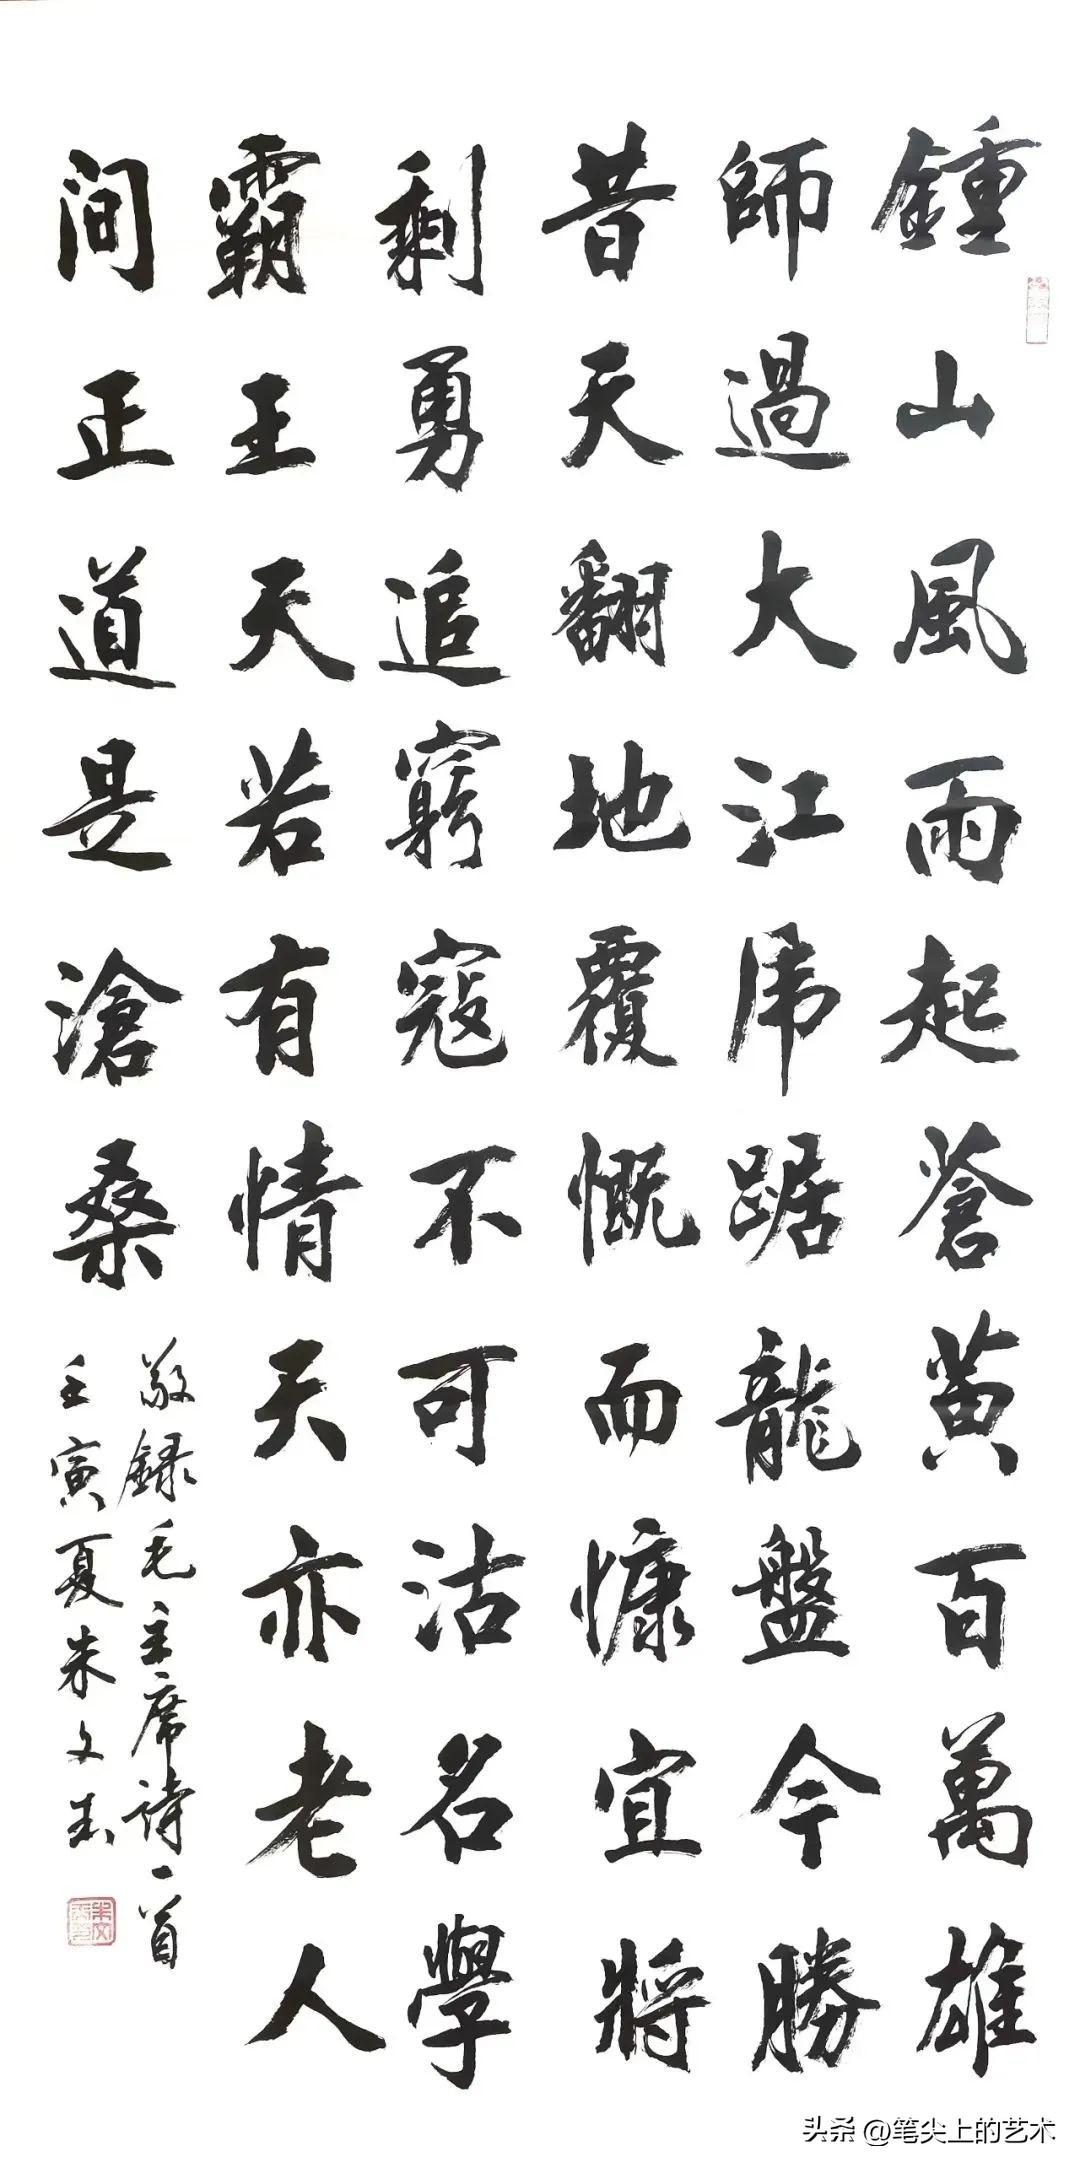 鍾山風雨起蒼黃百萬雄
師過大江虎踞龍盤今勝
昔天翻地覆慨而慷宜將
剩勇追窮寇不可沽名學
霸王天若有情天亦老人
间正道是滄桑
敬録毛主席詩一首
壬寅夏朱文
头条 @笔尖上的艺术